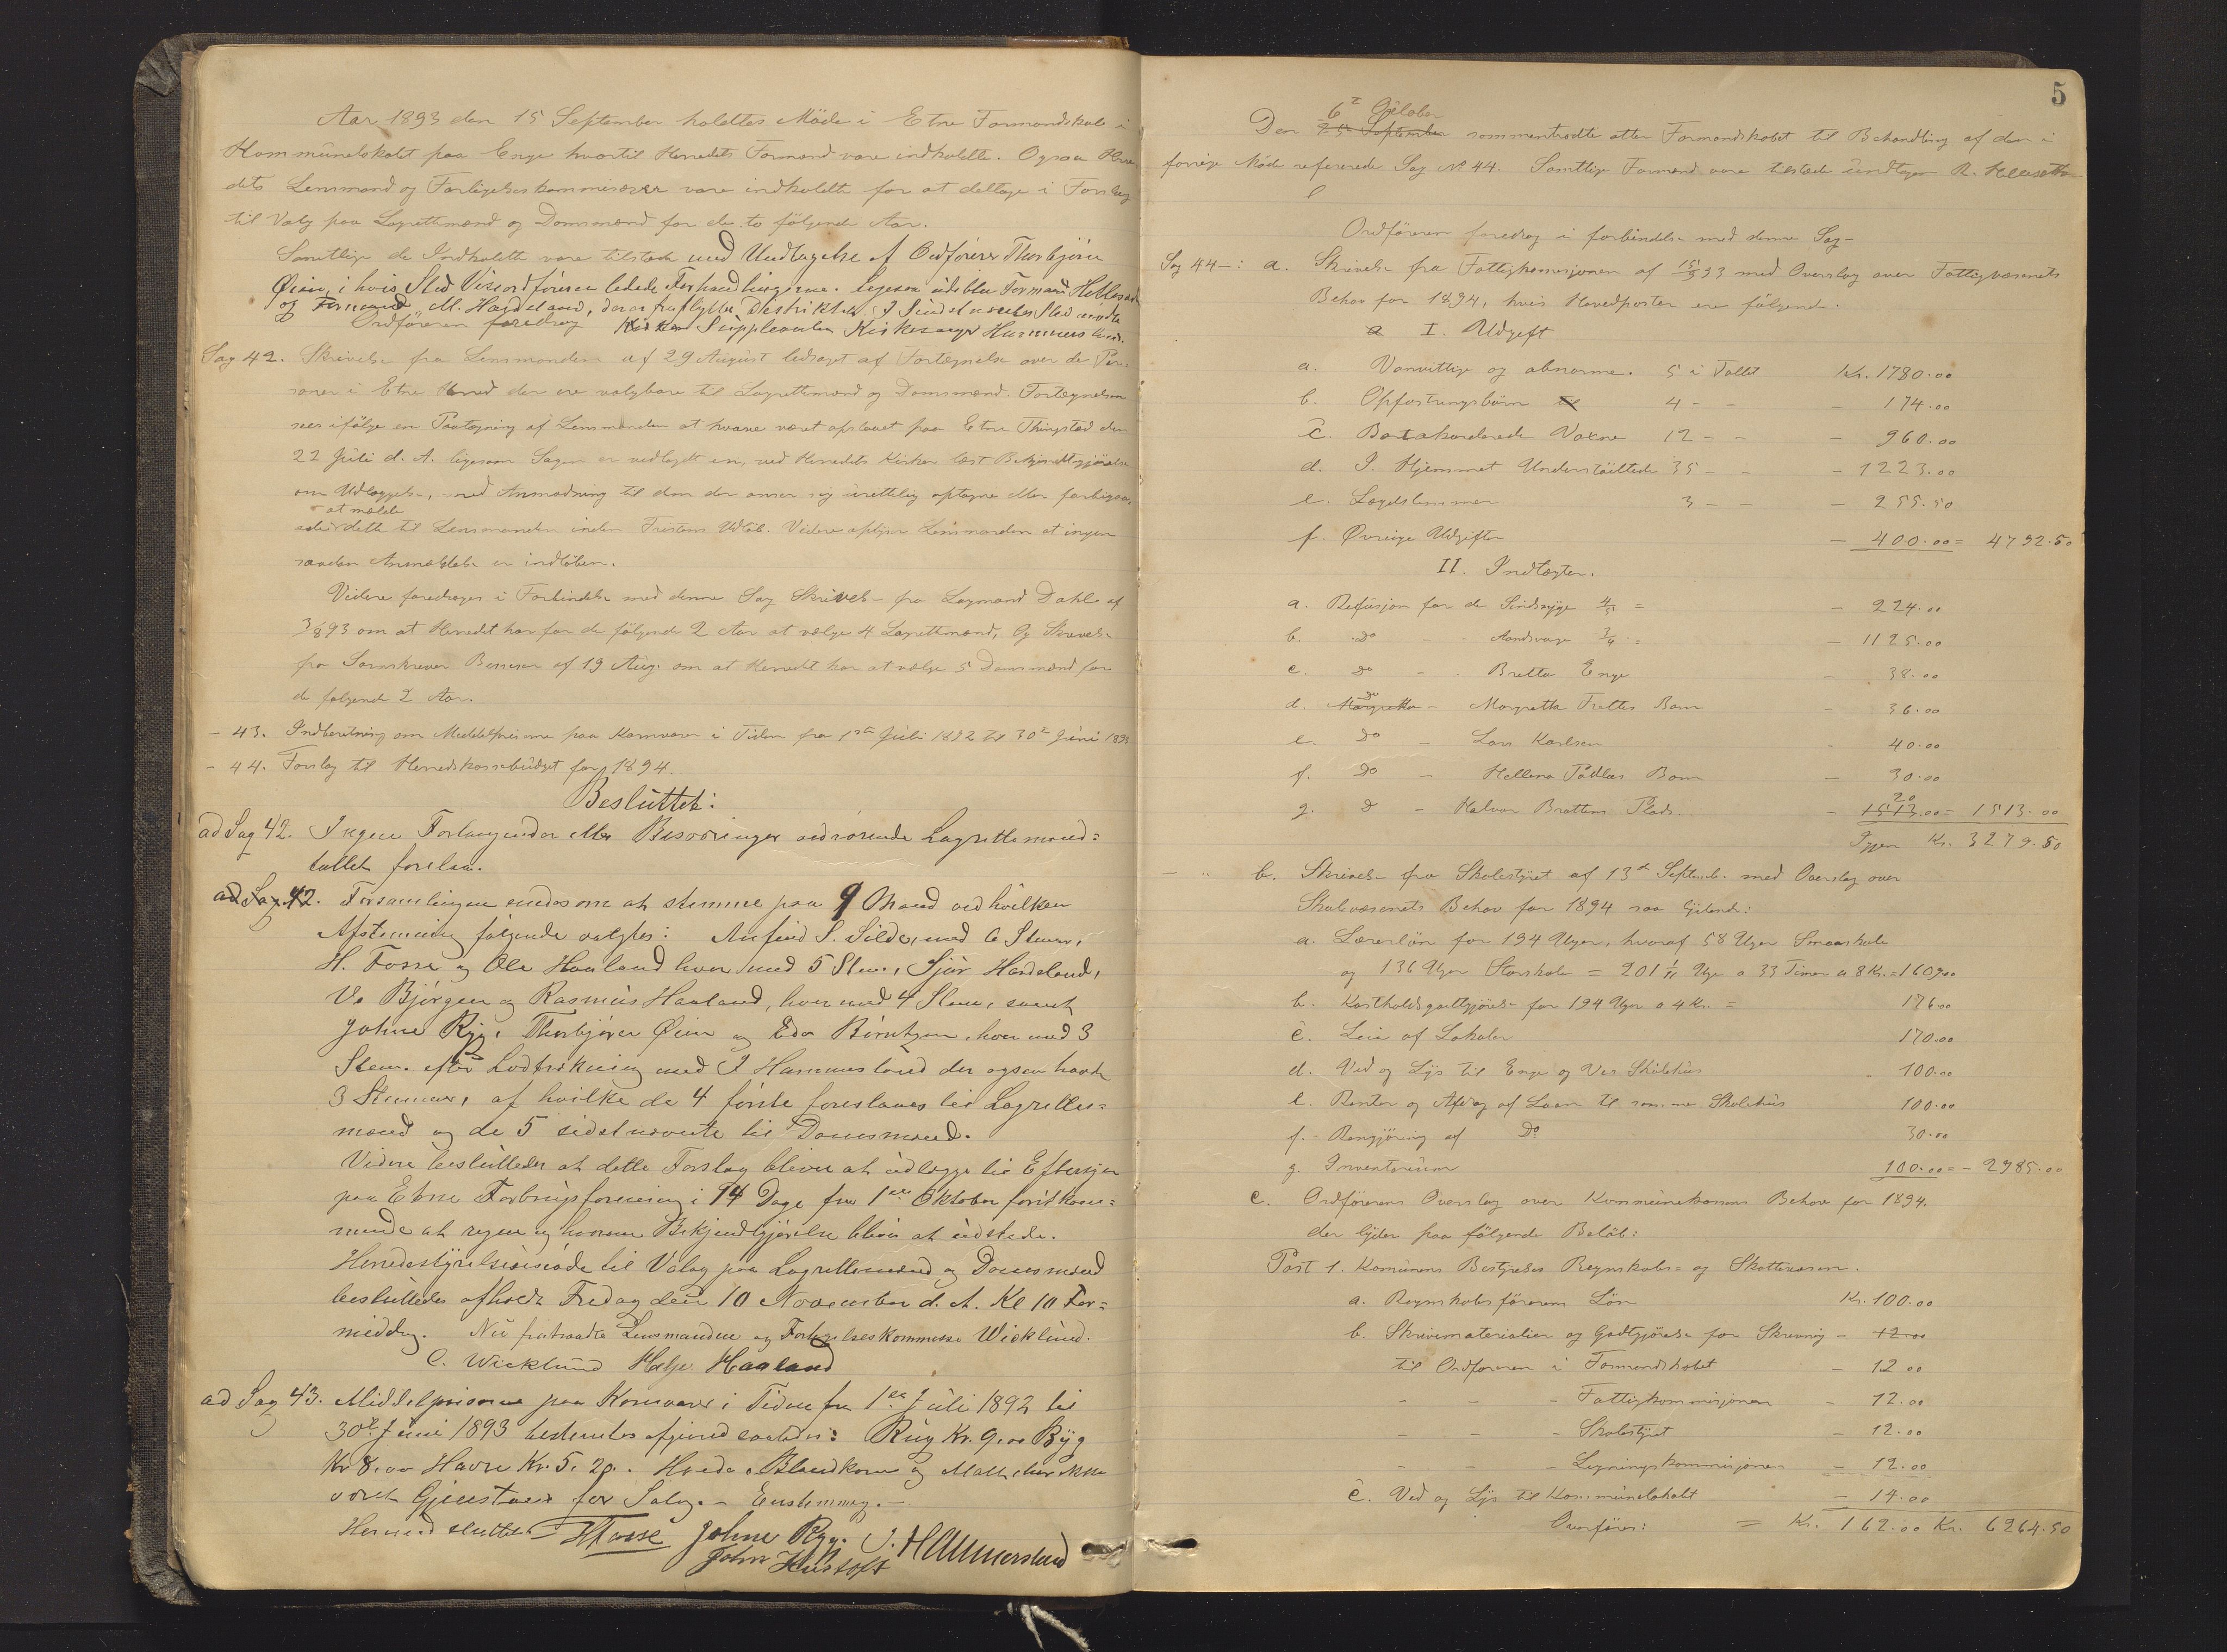 Aar 1893 den 15 September holdtes Möde i Etne Formandskab i
Kommunelokalet paa Enge hvortil Herredets Formænd vare indkaldte. Ogsaa Herre-
dets Lensmand og Forligelseskommisærer vare indkaldte for at deltage i Forslag
til Valg paa Lagrettemænd og Domsmænd for de to følgende Aar.
Samtlige de Indkaldte vare tilstede med Undtagelse af Ordförer Thorbjörn
Øien, i hvis Sted Viseordföreren ledede Forhandlingerne. Ligesaa udeblev Formand
og Formand M. Hardeland, der er fraflyttet Distriktet. I Sidstnævntes Sted mødte
Ordföreren foredrog Suppleanten Kirkesanger Hammersland.
Sag 42. Skrivelse fra Lensmanden af 29 August ledsaget af Fortegnelse over de Per-
soner i Etne Herred der ere valgbare til Lagrettemænd og Domsmænd. Fortegnelsen
sees ifölge en Paategning af Lensmanden at have været oplæst paa Etne Thingsted den
22 Juli d. A. ligesom Sagen er vedlagt en, ved Herredets Kirker læst Bekjendtgjörelse
om Udlæggelse, med Anmodning til dem der anser sig urettelig optagne eller forbigaa-
at melde
ede dette til Lensmanden inden Fristens Udlöb. Videre oplyser Lensmanden at ingen
saadan Anmeldelse er indlöben.
Videre foredroges i Forbindelse med denne Sag Skrivelse fra Lagmand Dahl af
3/8 93 om at Herredet har for de følgende 2 Aar at vælge 4 Lagrettemænd, Og Skrivelse
fra Sorenskriver af 19 Aug. om at Herredet har at vælge 5 Domsmænd for
de følgende 2 Aar.
- 43. Indberetning om Middelpriserne paa Kornvarer i Tiden fra 1ste Juli 1892 til 30te Juni 1893
- 44. Forslag til Herredskassebudget for 1894.
Besluttet:
ad Sag 42. Ingen Forlangender eller Besværinger vedrörende Lagrettemand-
tallet forelaa.
ad Sag 42. Forsamlingen enedes om at stemme paa 9 Mænd ved hvilken
Afstemning følgende valgtes: Anfind S. Silde, med 6 Stemmer,
H. Fosse og Ole Haaland hver med 5 Stem., Sjur Hardeland,
Ve Bjørgen og Rasmus Haaland, hver med 4 Stem, samt
Johne Ryg, Thorbjörn Øien og Börntzen, hver med 3
Stem. efter Lodtrækning med I Hammersland der ogsaa havde
3 Stemmer, af hvilke de 4 förste foreslaaes til Lagrette-
mænd og de 5 sidstnævnte til Domsmænd.
Videre besluttedes at dette Forslag bliver at udlægge til Eftersyn
paa Etne Forbrugsforening i 14 Dage fra 1ste Oktober förstkom-
mende at regne og herom Bekjendtgjörelse bliver at udstede.
Herredsstyrelsesmöde til Valg paa Lagrettemænd og Domsmænd
besluttedes afholdt Fredag den 10 November d. A. Kl 10 For-
middag. Nu fratraadte Lensmanden og Forligelseskommissær Wicklund.
C. Wicklund Helje Haaland
ad Sag 43. Middelpriserne paa Kornvarer i Tiden fra 1ste Juli 1892 til
30te Juni 1893 bestemtes afgivne saaledes: Rug Kr. 9.00 Byg
Kr 8.00 Havre Kr. 5.20. Hvede, Blandkorn og Malt, har ikke
været Gjenstand for Salg. - Enstemmig. -
Hermed sluttet HFosse Johne Ryg. I. Hammersland
John Hustoft
5
6te Oktober
Den 25de September sammentraadte atter Formandskabet til Behandling af den i
forrige Möde refererede Sag No 44. Samtlige Formænd vare tilstede undtagen R.
Ordföreren foredrog i forbindelse med denne Sag -
Sag 44 - : a. Skrivelse fra Fattigkomisjonen af 15/9 93 med Overslag over Fattigvæsenets
Behov for 1894, hvis Hovedposter ere følgende.
a I. Udgift
a. Vanvittige og abnorme. 5 i Tallet Kr. 1780.00
b. Opfostringsbörn til 4 - - - 174.00
c. Bortakorderede Voxne 12 - - - 960.00
d. I Hjemmet Understöttede 35 - - 1223.00
e. Lægdslemmer 3 - - - 255.50
f. Øvrige Udgifter - 400.00 = 4792.50
II. Indtægter.
a. Refusjon for de Sindsyge 4/5 = - 224.00
b. Do - - Aandsvage 3/4 = - 1125.00
c. Do - - Britta Enge - 38.00
d. Margretha Do - Margretha Trættes Barn - 36.00
e. Do - Lars Karlsen - 40.00
f. Do - Hellena Pødlas Barn - 30.00
20
g. D - Halvor Brattens Plads. - 1513.00 = 1513.00
Igjen Kr. 3279.50
- " b. Skrivelse fra Skolestyret af 13de Septembr. med Overslag over
Skolevæsenets Behov for 1894 saa lydende:
a. Lærerlön for 194 Uger, hvoraf 58 Uger Smaaskole
og 136 Uger Storskole = 201 1/11 Uger a 33 Timer a 8 Kr. = 1609.00
b. Kostholdsgodtgjörelse for 194 Uger a 4 Kr. = 176.00
c. Leie af Lokaler 170.00
d. Ved og Lys til Enge og Ves Skolehus - 100.00
e. Renter og Afdrag af Laan til samme Skolehus 100.00
f. Rengjöring af Do 30.00
g. Inventarium 100.00 = - 2985.00
c. Ordförerens Overslag over Kommunekassens Behov for 1894.
der lyder paa følgende Beløb:
Post 1. Komunens Bestyrelse Regnskabs- og Skattevæsen.
a. Regnskabsförerens Lön Kr. 100.00
b. Skrivematerialier og Godtgjörelse for Skrivning - 12.00
til Ordföreren i Formandskabet - 12.00
- - - Fattigkommisjonen - 12.00
- - - Skolestyret - 12.00
- - - Ligningskommisjonen - 12.00
c. Ved og Lys til Kommunelokalet - 14.00
Overföres: = Kr. 162.00 Kr. 6264.50